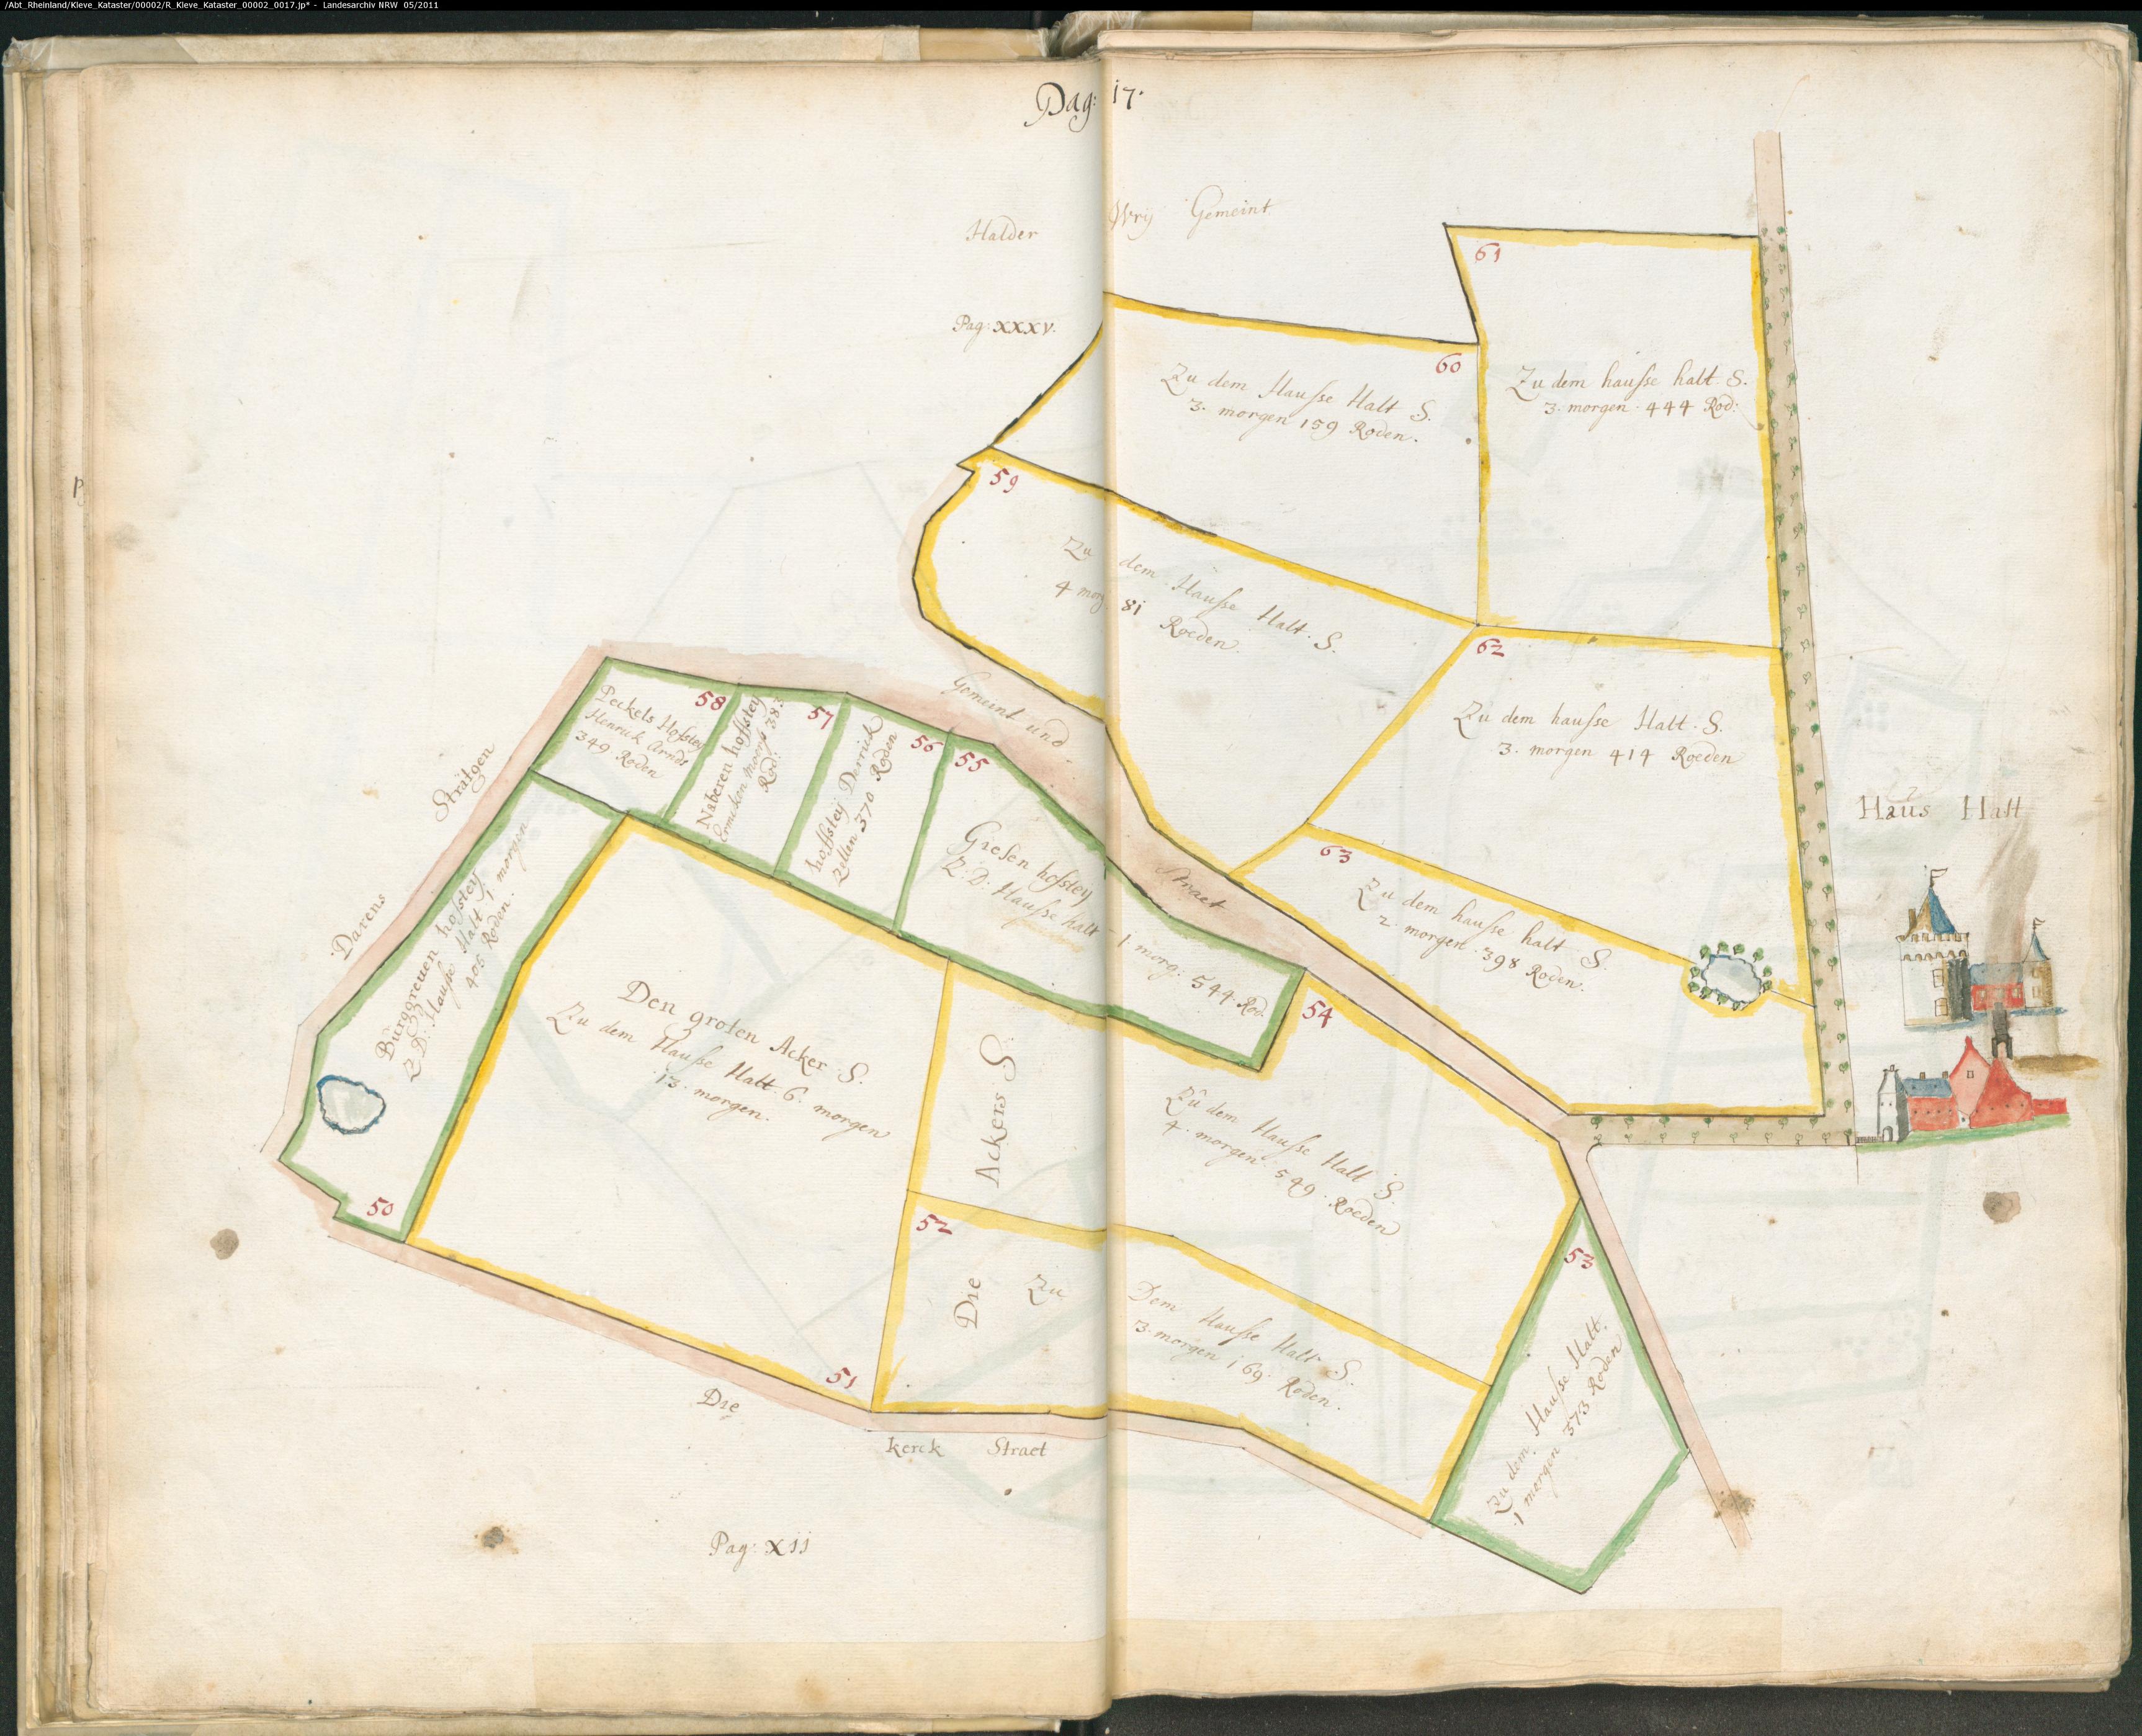 /Abt_Rheinland/Kleve_Kataster/00002/R_Kleve_Kataster_00002_0017.jp* - Landesarchiv NRW 05/2011
Pag: 17.
Halder Vrij Gemeint
Pag: XXXV.
61
Zu dem hausse halt S.
3. morgen. 444 Rod:
60
Zu dem Hausse Halt S.
3. morgen 159 Roden.
59
Zu dem Hausse Halt. S.
4 morg. 81
Roeden.
62
Zu dem hausse Halt. S.
3. morgen 414 Roeden
63
Zu dem hausse halt S.
2. morgen. 398 Roden.
Haus Halt
Gemeint und
Straet
58
Peckels Hofstey
Henrick Arnds
349. Roden
57
Naberen hoffstey
383
Rod.
56
hoffsteij Derrick
Zellen 370 Roden
55
Giesen hofstey
Z: D: Hausse halt - 1 morg: 544. Rod.
Darens Strätgen
Burggreuen hofsteij
Z D: Hausse Halt 1 morgen
405 Roden.
50
Den groten Acker S.
Zu dem Hausse Halt. 6. morgen
13. morgen.
51
54
Zu dem Hausse Halt S.
4. morgen. 549. Roeden
Die Ackers S
52
Zu Dem Hausse Halt S.
3. morgen 169. Roden.
53
Zu dem Hausse Halt.
1 morgen 573. Roden
Die
kerck Straet
Pag: XII